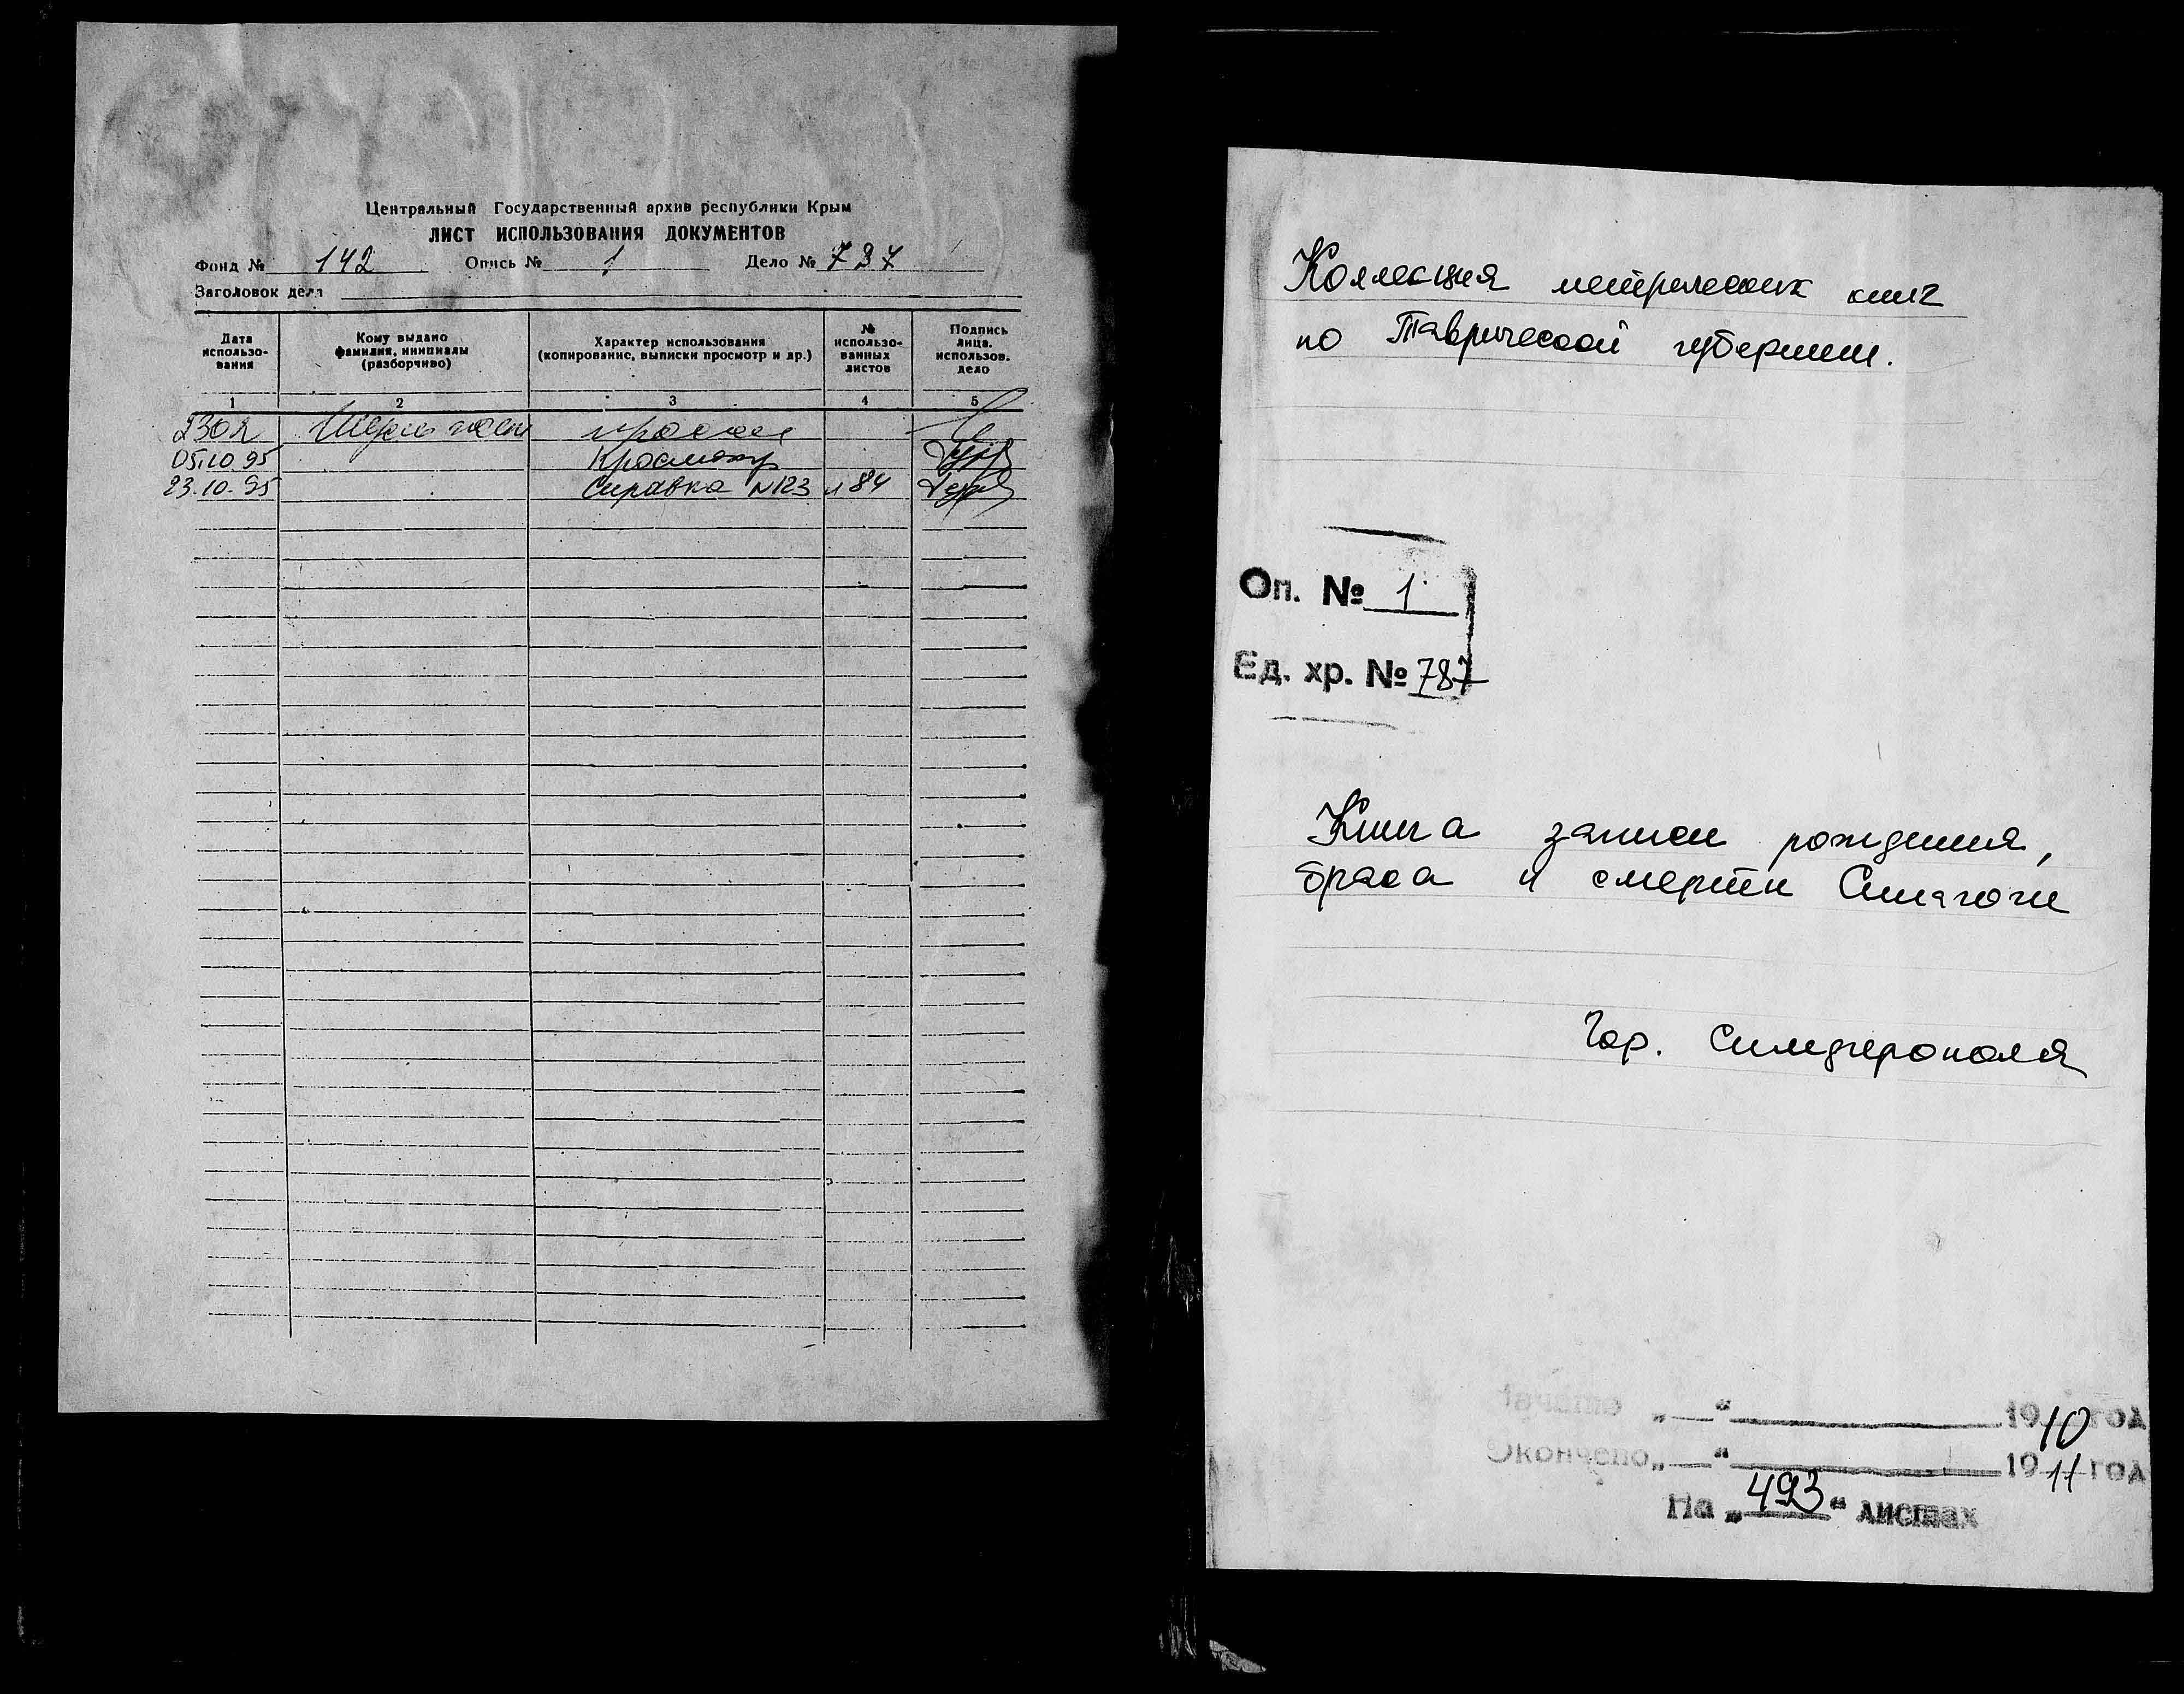 Центральный Государственный архив республики Крым
ЛИСТ ИСПОЛЬЗОВАНИЯ ДОКУМЕНТОВ
Фонд № 142 Опись № 1 Дело № 787
Заголовок дела
Дата использо-вания
Кому выдано фамилия, инициалы (разборчиво)
Характер использования (копирование, выписки просмотр и др.)
№ использо-ванных листов
Подпись лица. использов. дело
1 2 3 4 5
05.10.95 Просмотр
23.10.95 Справка №123 л 84
Коллекция метрических книг
по Таврической губернии.
Оп. № 1
Ед. хр. № 787
Книга записи рождения,
брака и смерти Синагоги
Гор. Симферополя
Начато „ “ 1910 год
Окончено „ “ 1911 год
На „493“ листах